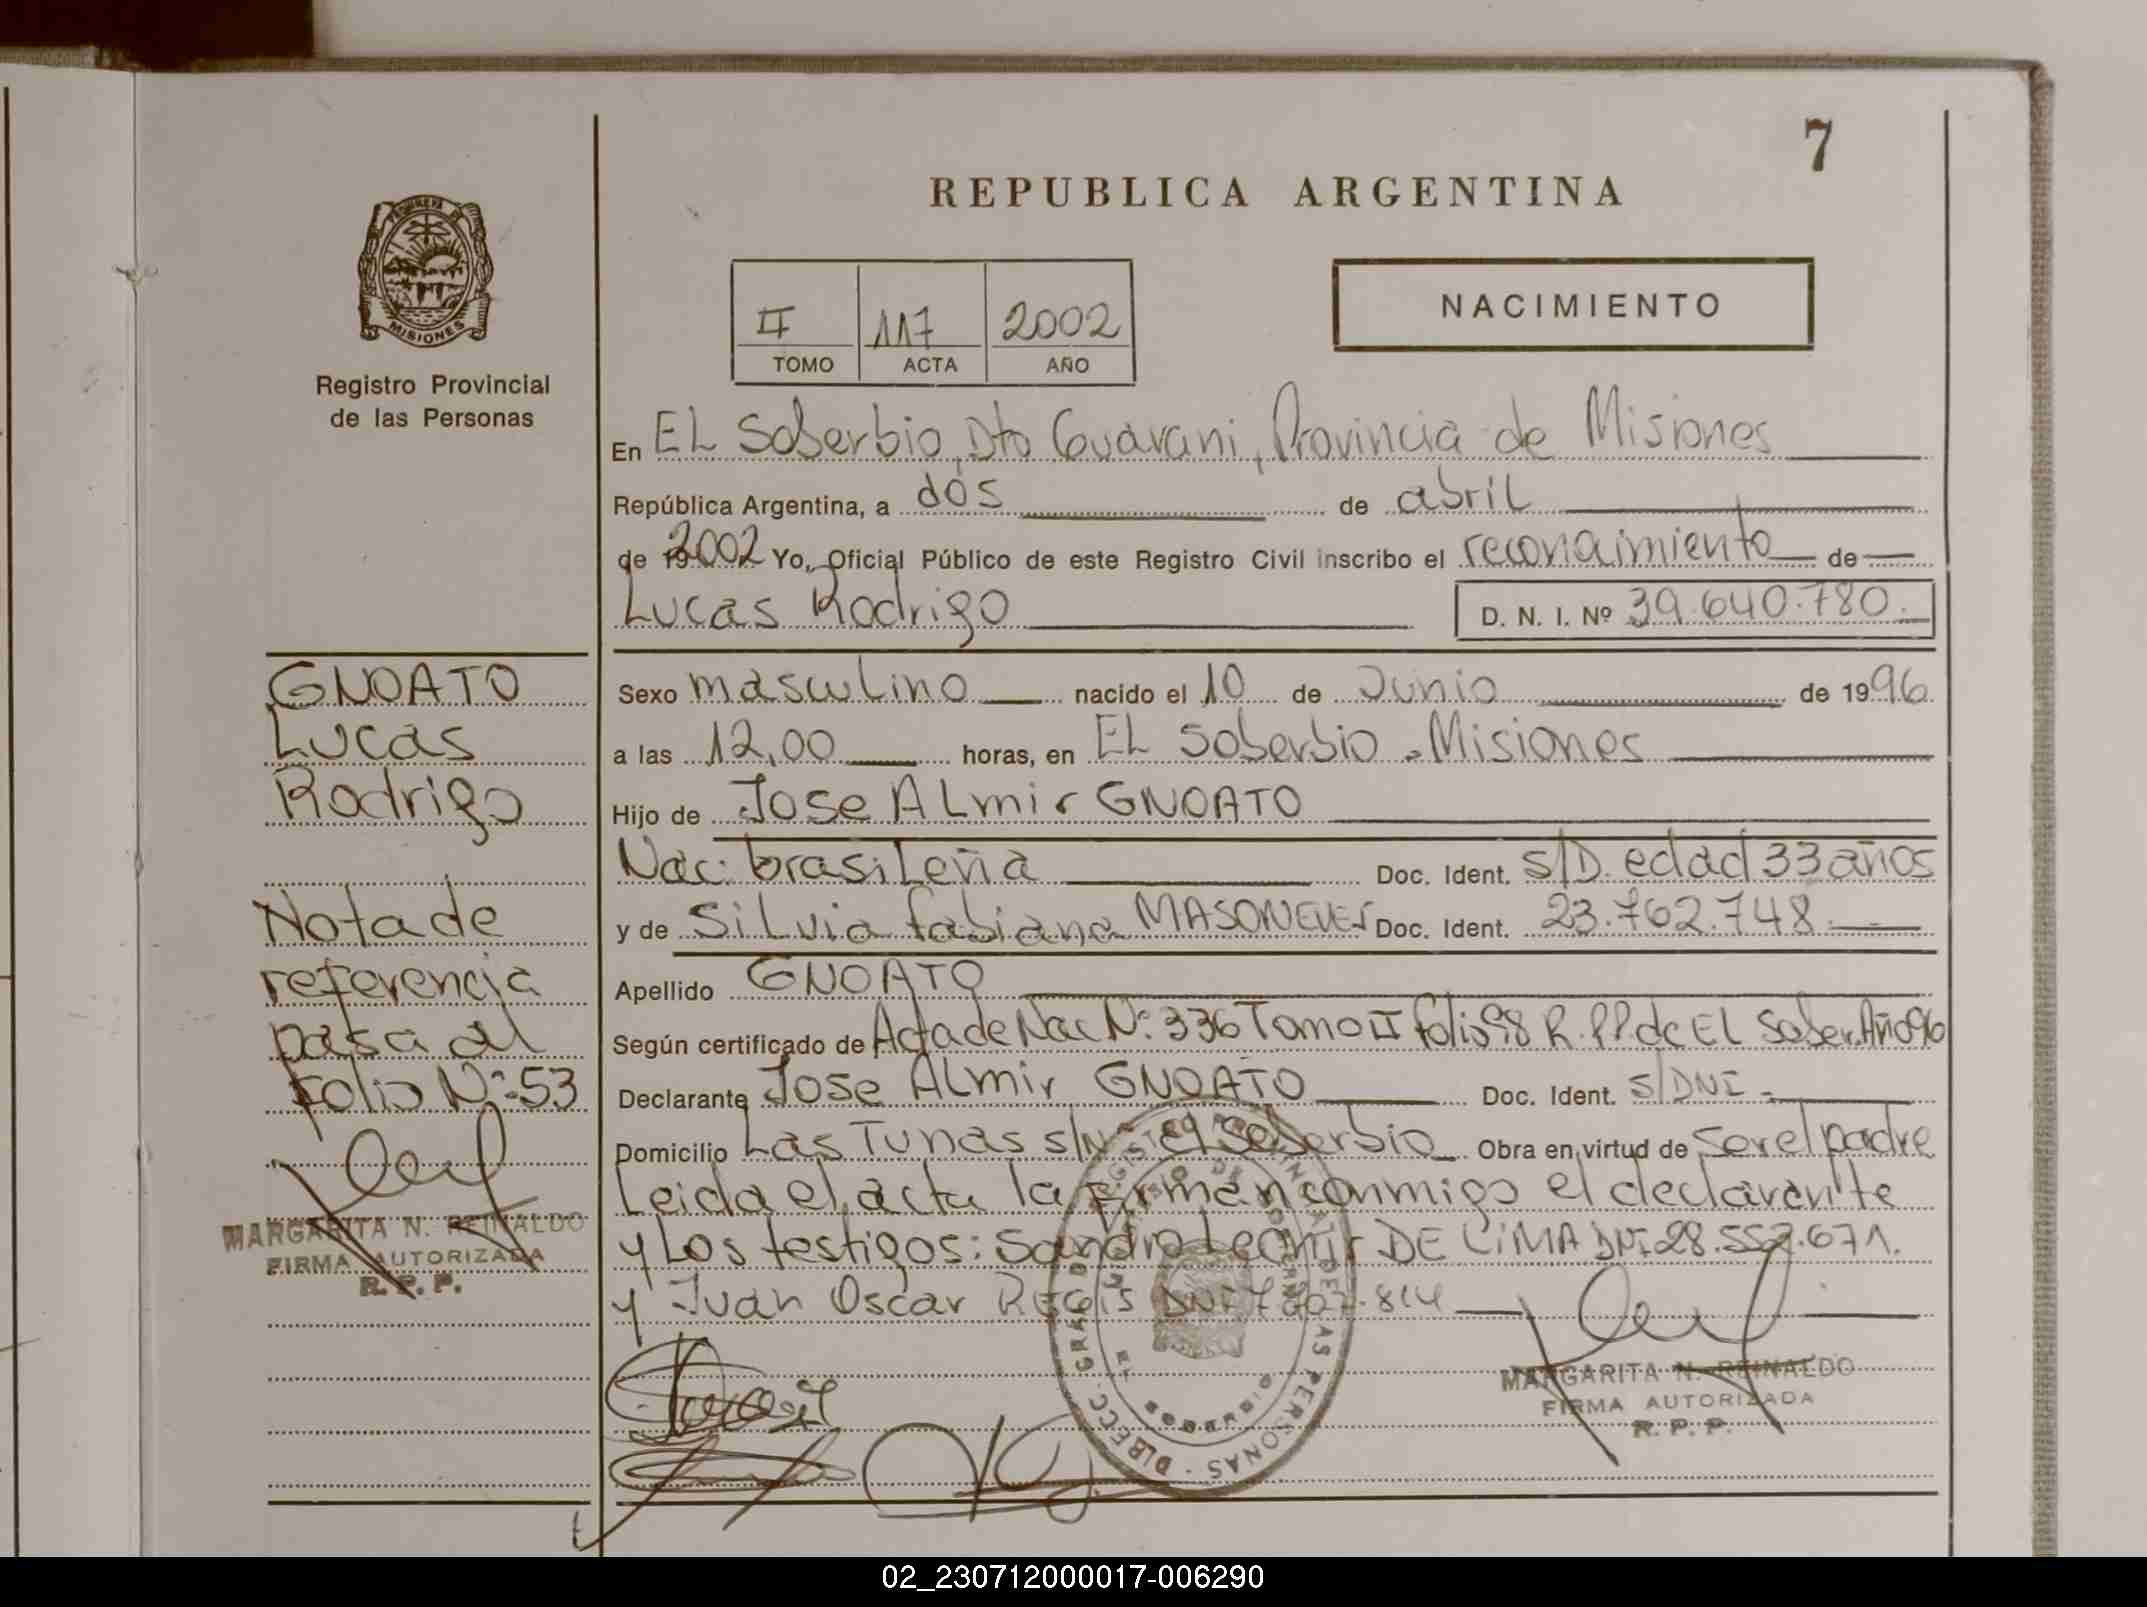 7
REPUBLICA ARGENTINA
PROVINCIA DE
MISIONES
Registro Provincial
de las Personas
II 117 2002
TOMO ACTA AÑO
NACIMIENTO
En EL Soberbio, Dto Guarani, Provincia de Misiones
República Argentina, a dós de abril
de 2002 Yo, Oficial Público de este Registro Civil inscribo el reconocimiento de
Lucas Rodrigo D. N. I. Nº 39.640.780.
GNOATO
Lucas
Rodrigo
Nota de
referencia
pasa al
Folio Nº:53
MARGARITA N. REINALDO
FIRMA AUTORIZADA
R. P. P.
Sexo masculino nacido el 10 de Junio de 1996
a las 12,00 horas, en EL Soberbio - Misiones
Hijo de Jose ALmir GNOATO
Nac: brasiLeña Doc. Ident. S/D. edad 33 años
y de SiLvia fabiana Doc. Ident. 23.762.748
Apellido GNOATO
Según certificado de Acta de Nac Nº: 336 Tomo II folio 98 R.P.P. de EL Sober. Año 96
Declarante Jose ALmir GNOATO Doc. Ident. S/DNI -
Domicilio Las Tunas s/Nº El Soberbio Obra en virtud de ser el padre
Leida el acta la firman conmigo el declarante
y Los testigos: Sandro DE LIMA DNI 28.552.671.
y Juan Oscar REGIS DNI
MARGARITA N. REINALDO
FIRMA AUTORIZADA
R. P. P.
02_230712000017-006290